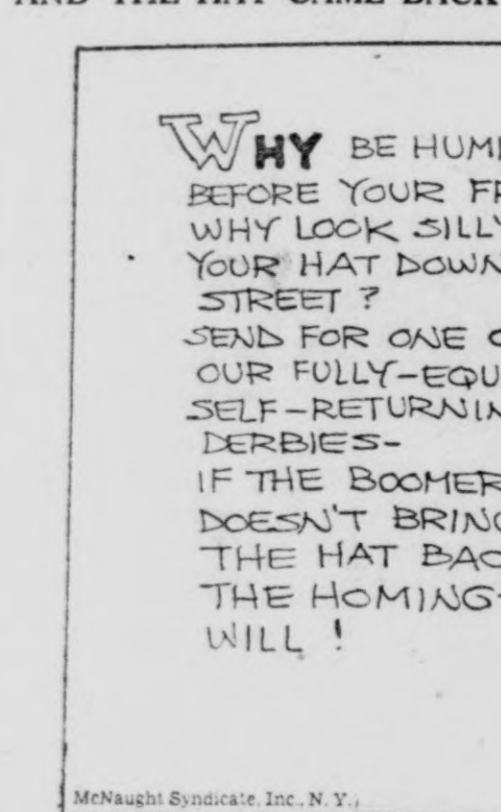 AND THE HAT CAME BACK
WHY BE HUMI
BEFORE YOUR FR
WHY LOOK SILLY
YOUR HAT DOWN
STREET ?
SEND FOR ONE O
OUR FULLY-EQU
SELF-RETURNIN
DERBIES-
IF THE BOOMER
DOESN'T BRING
THE HAT BAC
THE HOMING-
WILL !
McNaught Syndicate, Inc., N. Y.,